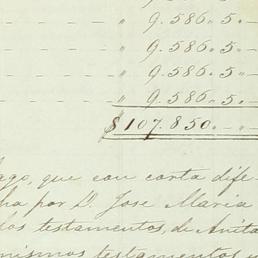 — — — — " 9.586" 5" —
— — — — " 9.586" 5" —
— — — — " 9.586" 5" —
— — — — " 9.586" 5" —
$107.850" — " —
que con carta dife-
por D. Jose Maria
los testamentos, de Anita
mismos testamentos y